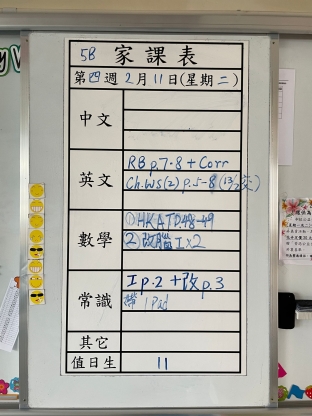 5B 家課表
第四週 2月11日(星期二)
中文
英文
RB p.7-8 + Corr
Ch.WS(2) p.5-8 (13/2交)
數學
①HKAT P.48-49
②改腦Ix2
常識
I p.2 + 改 p.3
帶 iPad
其它
值日生 11